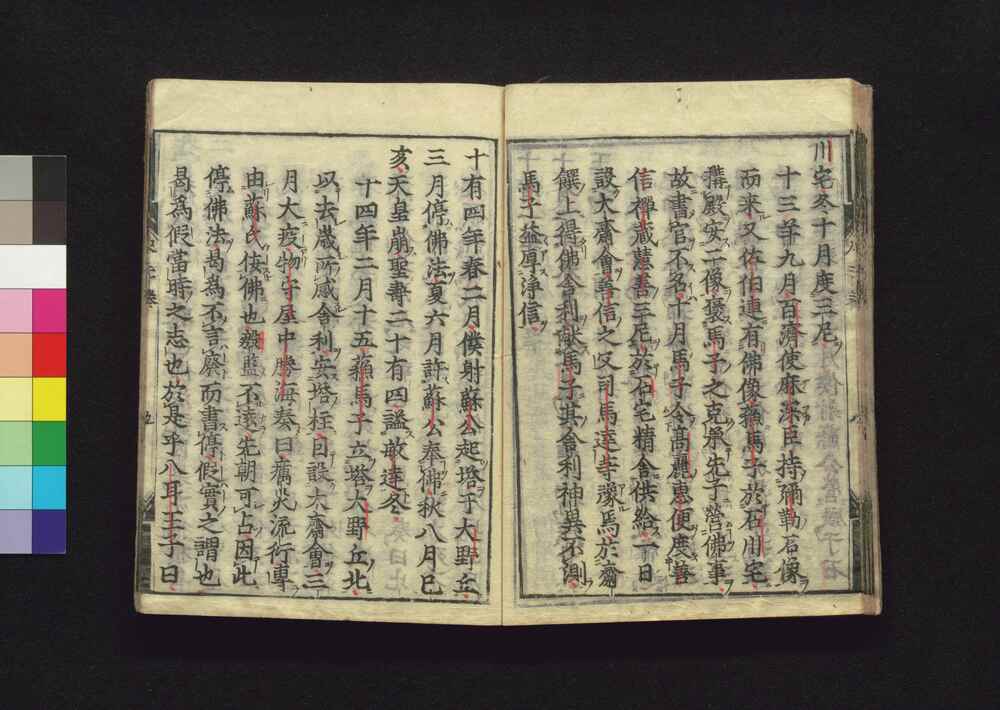 川宅冬十月度三尼
十三年九月百濟使麻深臣持彌勒石像
而来又佐伯連有佛像蘓馬子於石川宅
搆殿安二像褒馬子之克承先子營佛事
故書官不名十月馬子令高麗惠便度善
信禪藏慧善三尼於仕宅精舎供給一日
設大齋會善信之父司馬達寺豫焉於齋
饌上得佛舎利献馬子其舎利神異不測
馬子益厚淨信
十有四年春二月僕射蘇公起塔于大野丘
三月停佛法夏六月許蘇公奉佛秋八月己
亥天皇崩聖壽二十有四謚敏達冬
十四年二月十五蘓馬子立塔大野丘北
以去歳所感舎利安塔柱日設大齋會三
月大疫物守屋中勝海奏曰癘災流行專
由蘇氏佞佛也殷監不遠先朝可占因此
停佛法曷為不言廢而書停假實之謂也
曷為假當時之志也於是乎八耳王子曰